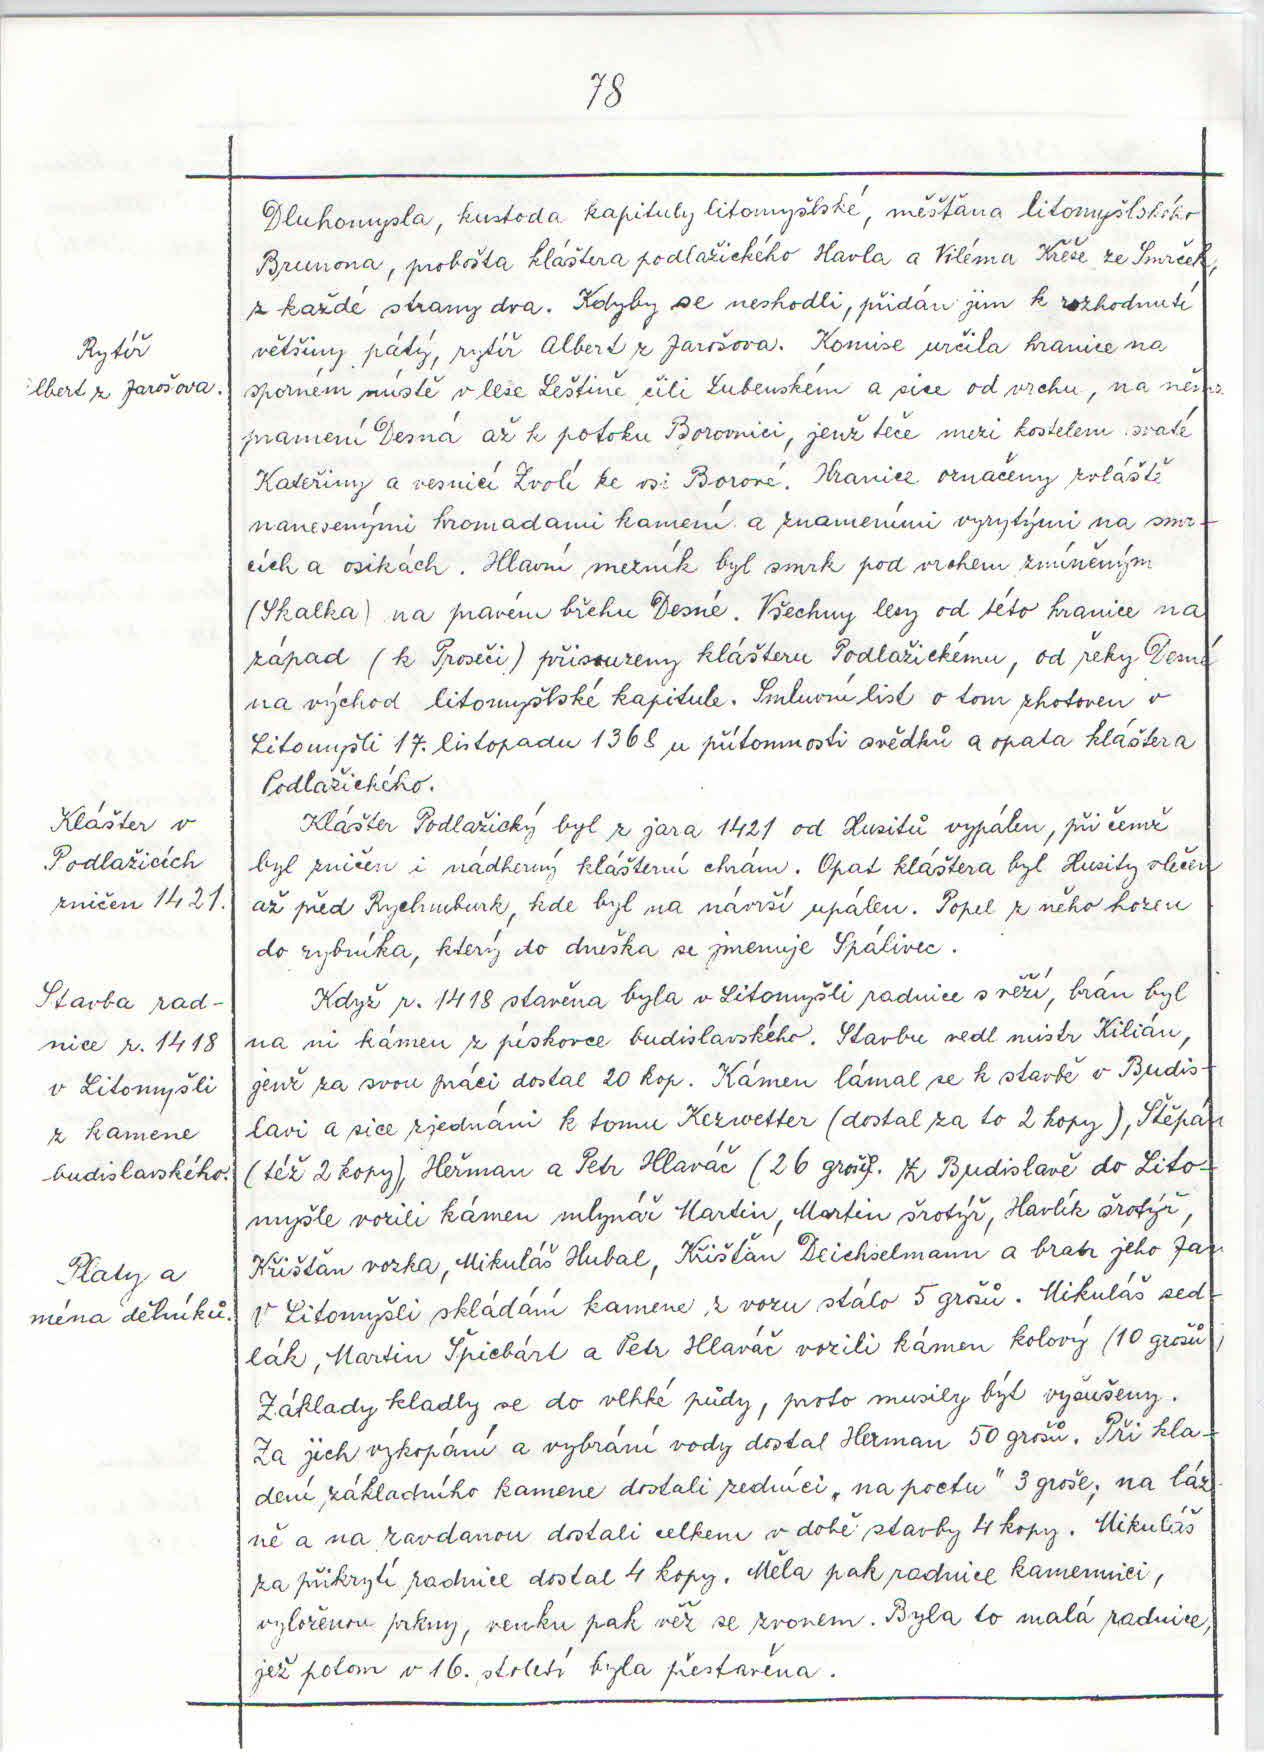 78
Dluhomysla, kustoda kapituly litomyšlské, měšťana litomyšlského
Brunona, probošta kláštera podlažického Havla a Viléma Křeše ze Smrček,
z každé strany dva. Kdyby se neshodli, přidán jim k rozhodnutí
Rytíř
většiny pátý, rytíř Albert z Jarošova. Komise určila hranice na
lbert z Jarošova.
sporném místě v lese Leštině čili Lubenském a sice od vrchu, na němž
pramení Desná až k potoku Borovnici, jenž teče mezi kostelem svaté
Kateřiny a vesnicí Zvolí ke vsi Borové. Hranice označeny zvláště
nanesenými hromadami kamení a znameními vyrytými na smr-
cích a osikách. Hlavní mezník byl smrk pod vrchem zmíněným
(Skalka) na pravém břehu Desné. Všechny lesy od této hranice na
západ (k Proseči) přisouzeny klášteru Podlažickému, od řeky Desné
na východ litomyšlské kapitule. Smluvní list o tom zhotoven v
Litomyšli 17. listopadu 1368 u přítomnosti svědků a opata kláštera
Podlažického.
Klášter v
Podlažicích
zničen 1421.
Klášter Podlažický byl z jara 1421 od Husitů vypálen, při čemž
byl zničen i nádherný klášterní chrám. Opat kláštera byl Husity vlečen
až před Rychmburk, kde byl na návrší upálen. Popel z něho hozen
do rybníka, který do dneška se jmenuje Spálivec.
Stavba rad-
nice r. 1418
v Litomyšli
z kamene
budislavského.
Když r. 1418 stavěna byla v Litomyšli radnice s věží, brán byl
na ni kámen z pískovce budislavského. Stavbu vedl mistr Kilián,
jenž za svou práci dostal 20 kop. Kámen lámal se k stavbě v Budis-
lavi a sice zjednáni k tomu Kezwetter (dostal za to 2 kopy), Štěpán
(též 2 kopy), Heřman a Petr Hlaváč (26 grošů. Z Budislavě do Lito-
myšle vozili kámen mlynář Martin, Martin šrotýř, Havlík šrotýř,
Platy a
ména dělníků.
Křišťán vozka, Mikuláš Hubal, Křišťán Deichselmann a bratr jeho Jan
V Litomyšli skládání kamene z vozu stálo 5 grošů. Mikuláš sed-
lák, Martin Špicbárt a Petr Hlaváč vozili kámen kolový (10 grošů)
Základy kladly se do vlhké půdy, proto musily být vysušeny.
Za jich vykopání a vybrání vody dostal Herman 50 grošů. Při kla-
dení základního kamene dostali zedníci „na poctu" 3 groše; na láz-
ně a na zavdanou dostali celkem v době stavby 4 kopy. Mikuláš
za přikrytí radnice dostal 4 kopy. Měla pak radnice kamennici,
vyloženou prkny, venku pak věž se zvonem. Byla to malá radnice,
jež potom v 16. století byla přestavěna.